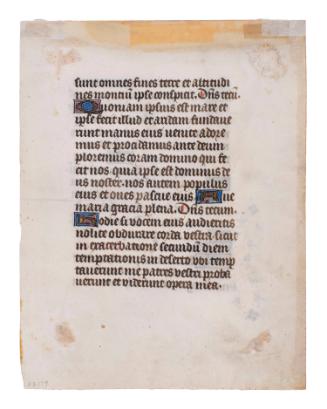 sunt omnes fines terre et altitudi
nes montiũ ipse conspicit. Dñs tecũ.
Quoniam ipsius est mare et
ipse fecit illud et aridam fundaue
runt manus eius uenite adore
mus et procidamus ante deum
ploremus coram domino qui fe
cit nos. quia ipse est dominus de
us noster. nos autem populus
eius et oues pascue eius Aue
maria gracia plena. Dñs tecum.
Hodie si vocem eius audieritis
nolite obdurare corda vestra. sicut
in exacerbatione secundũ diem
temptationis in deserto vbi temp
tauerunt me patres vestri proba
uerunt et viderunt opera mea.